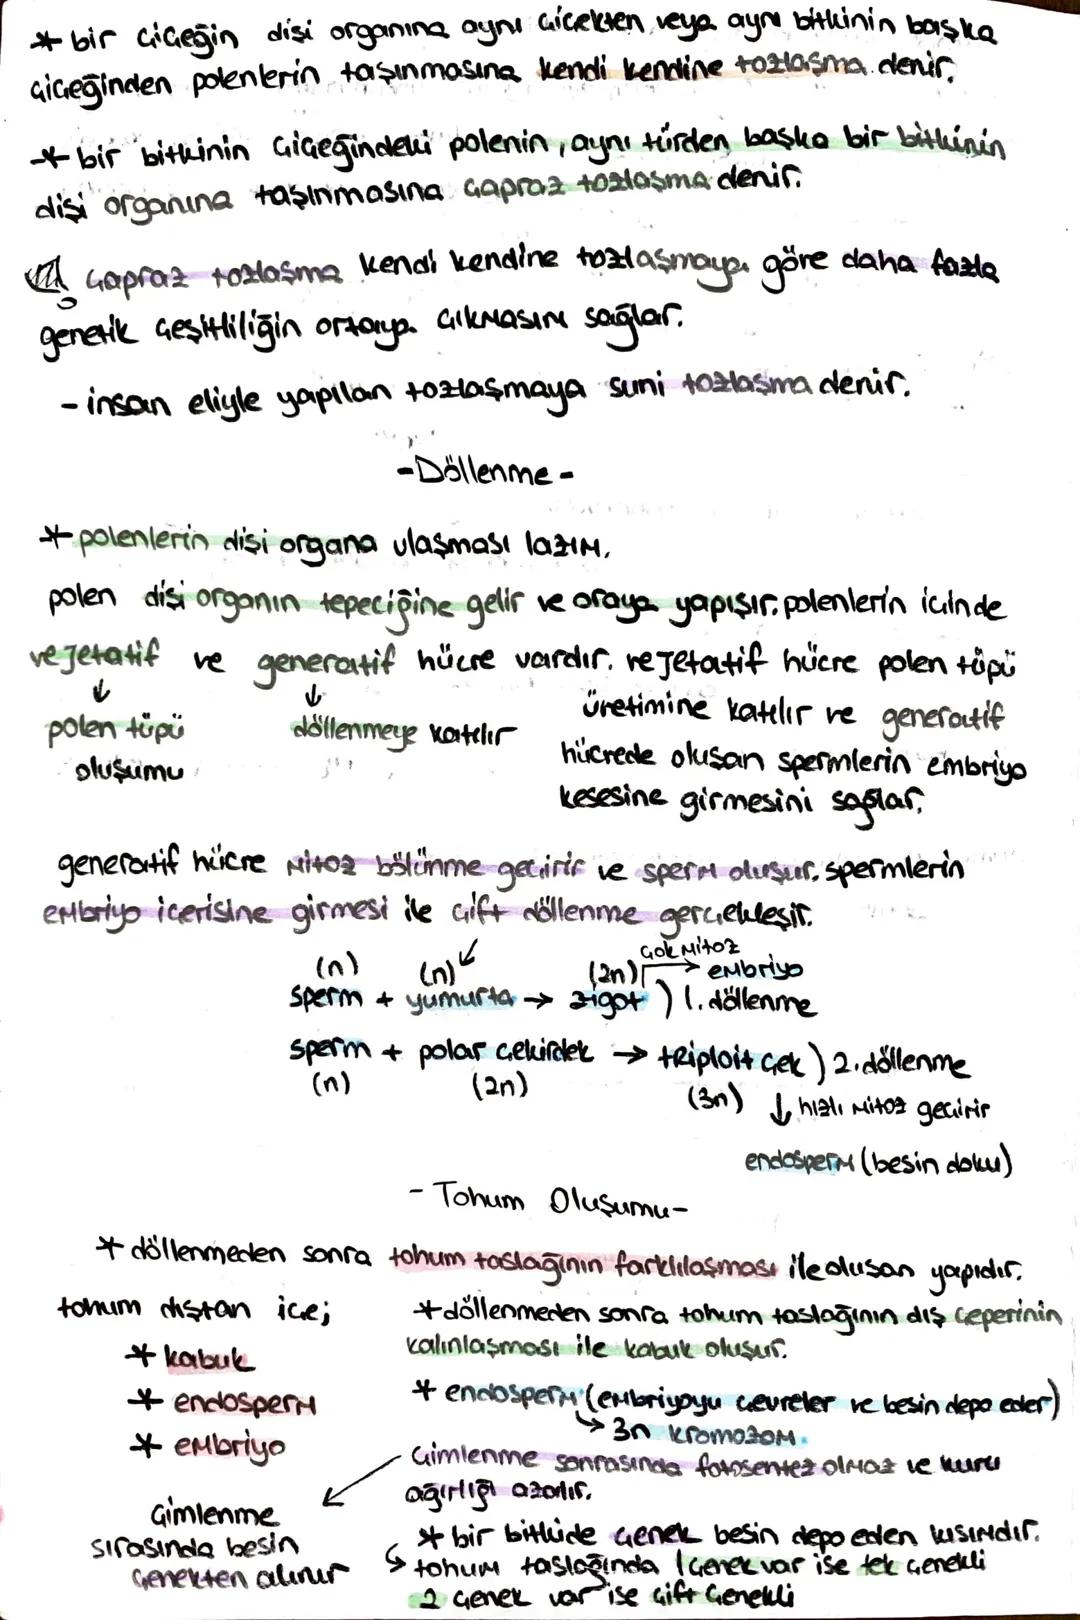 * bir çiçeğin dişi organına aynı çiçekten veya aynı bitkinin başka
çiçeğinden polenlerin taşınmasına kendi kendine tozlaşma denir.
* bir bitkinin çiçeğindeki polenin, aynı türden başka bir bitkinin
dişi organına taşınmasına çapraz tozlaşma denir.
çapraz tozlaşma kendi kendine tozlaşmaya göre daha fazla
genetik çeşitliliğin ortaya çıkmasını sağlar.
- insan eliyle yapılan tozlaşmaya suni tozlaşma denir.
- Döllenme -
* polenlerin dişi organa ulaşması lazım.
polen dişi organın tepeciğine gelir ve oraya yapışır. polenlerin içinde
vejetatif ve generatif hücre vardır. vejetatif hücre polen tüpü
↓ ↓ üretimine katılır ve generatif
polen tüpü döllenmeye katılır
oluşumu hücrede oluşan spermlerin embriyo
kesesine girmesini sağlar.
generatif hücre mitoz bölünme geçirir ve sperm oluşur. spermlerin
embriyo içerisine girmesi ile çift döllenme gerçekleşir.
çok mitoz
(n) (n) (2n) → embriyo
sperm + yumurta → zigot ) 1. döllenme
sperm + polar çekirdek → triploit çek ) 2. döllenme
(n) (2n) (3n) ↓ hızlı mitoz geçirir
endosperm (besin doku)
- Tohum Oluşumu -
* döllenmeden sonra tohum taslağının farklılaşması ile oluşan yapıdır.
tohum dıştan içe;
* kabuk
* endosperm
* embriyo
* döllenmeden sonra tohum taslağının dış çeperinin
kalınlaşması ile kabuk oluşur.
* endosperm (embriyoyu çevreler ve besin depo eder)
↳ 3n kromozom.
Çimlenme sonrasında fotosentez olmaz ve kuru
ağırlığı azalır.
Çimlenme
sırasında besin
çenekten alınır
* bir bitkide çenek besin depo eden kısımdır.
↳ tohum taslağında 1 çenek var ise tek çenekli
2 çenek var ise çift çenekli